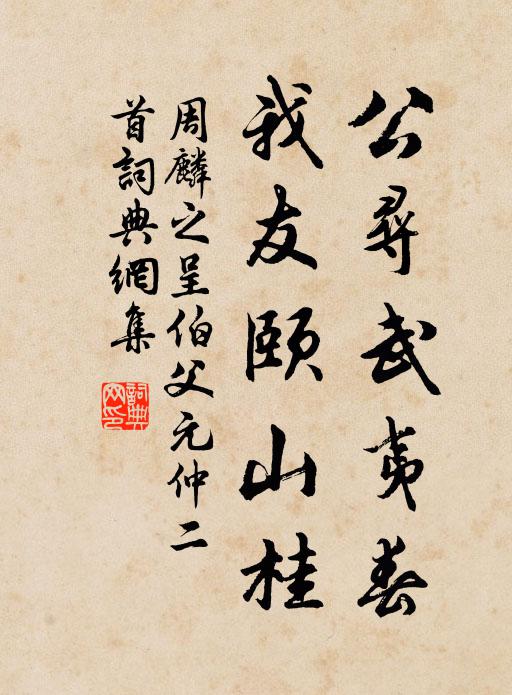 公尋武夷春
我友頤山桂
周麟之呈伯父元仲二
首詞典網集
詞典
网印